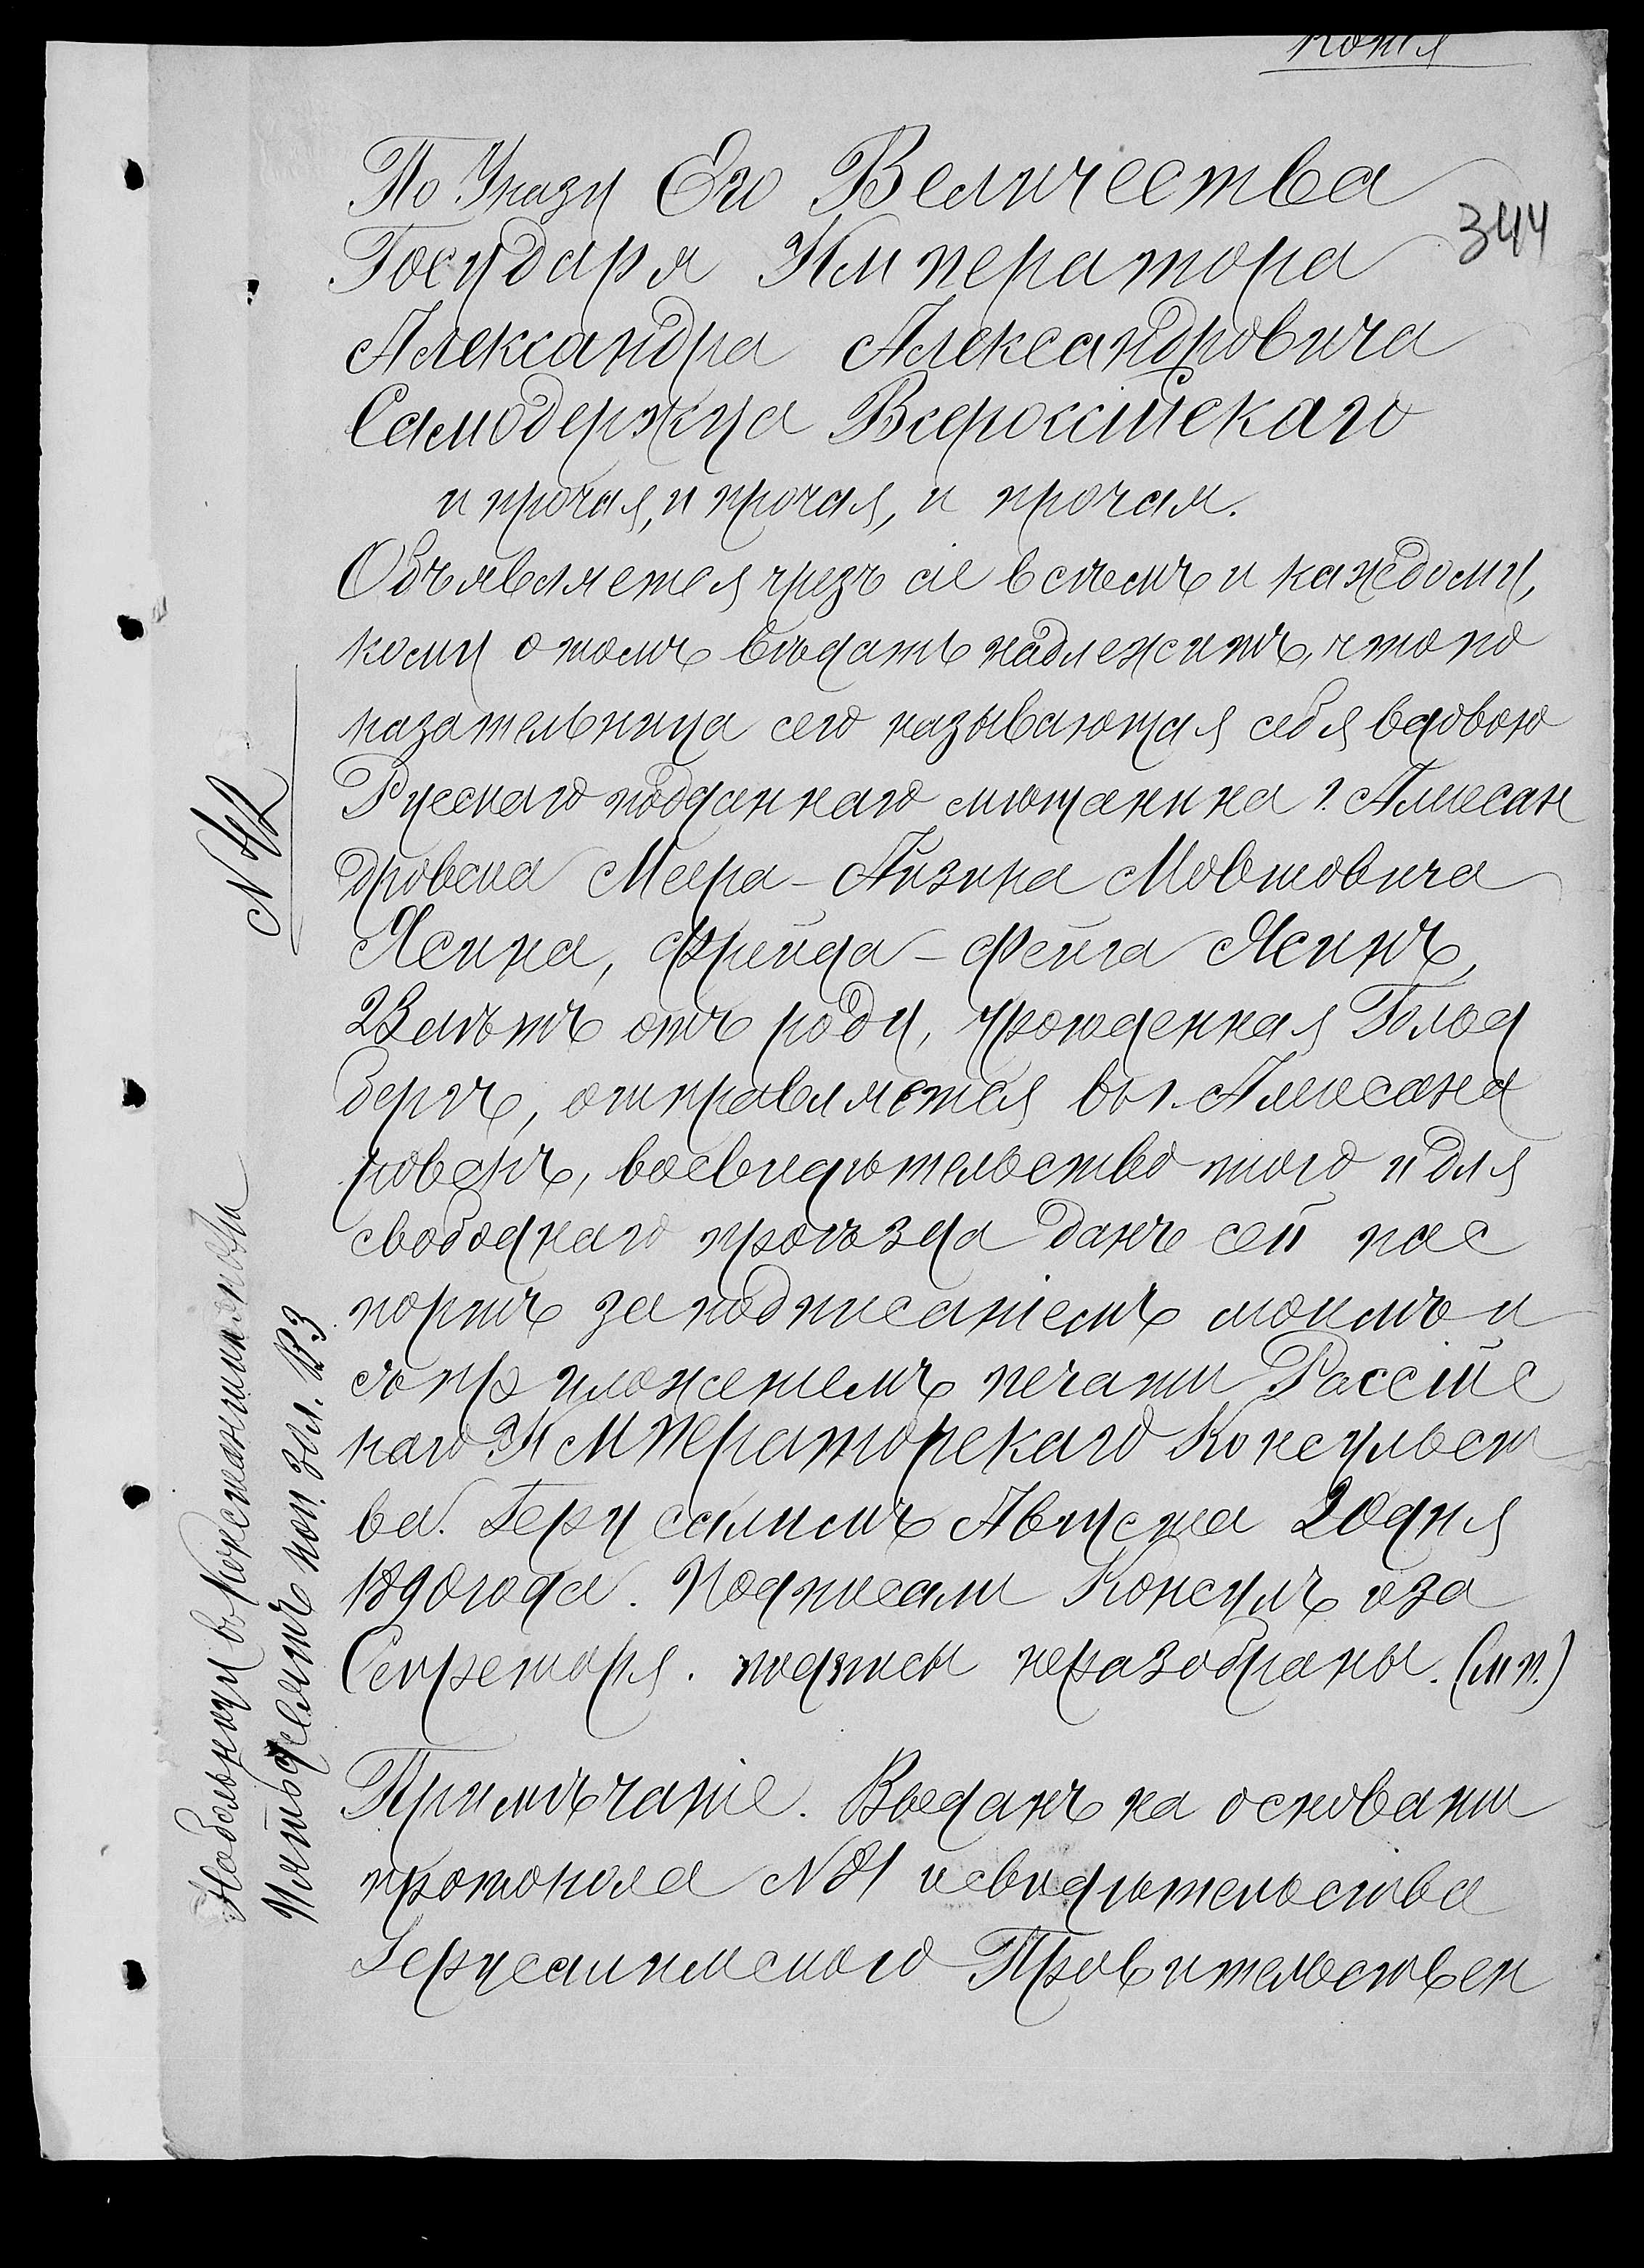 Копія
344
По Указу Его Величества
Государя Императора
Александра Александровича
Самодержца Всероссійскаго
и прочая, и прочая, и прочая.
Объявляется чрезъ сіе всѣмъ и каждому,
кому о томъ вѣдать надлежитъ, что по
казательница сего называющая себя вдовою
Русскаго подданнаго мѣщанина г. Алексан
дровска Меера-Айзика Мовшовича
Ясина, Фрейда-Фейга Ясинъ,
23 лѣтъ отъ роду, урожденная Голод
бергъ, отправляется въ г. Александ
ровскъ, во свидѣтельство того и для
свободнаго проѣзда данъ сей пас
портъ за подписаніемъ моимъ и
съ приложеніемъ печати Россійс
каго Императорскаго Консульст
ва. Іерусалимъ Августа 20 дня
1890 года. Подписали Консулъ и за
Секретаря. подписи неразобраны. (м п.)
Примѣчаніе. Выданъ на основаніи
протокола N 81 и свидѣтельства
Іерусалимскаго Правительствен
N 42
Надсмотр въ Константинополѣ
Пятьдесятъ коп. зол. № 3